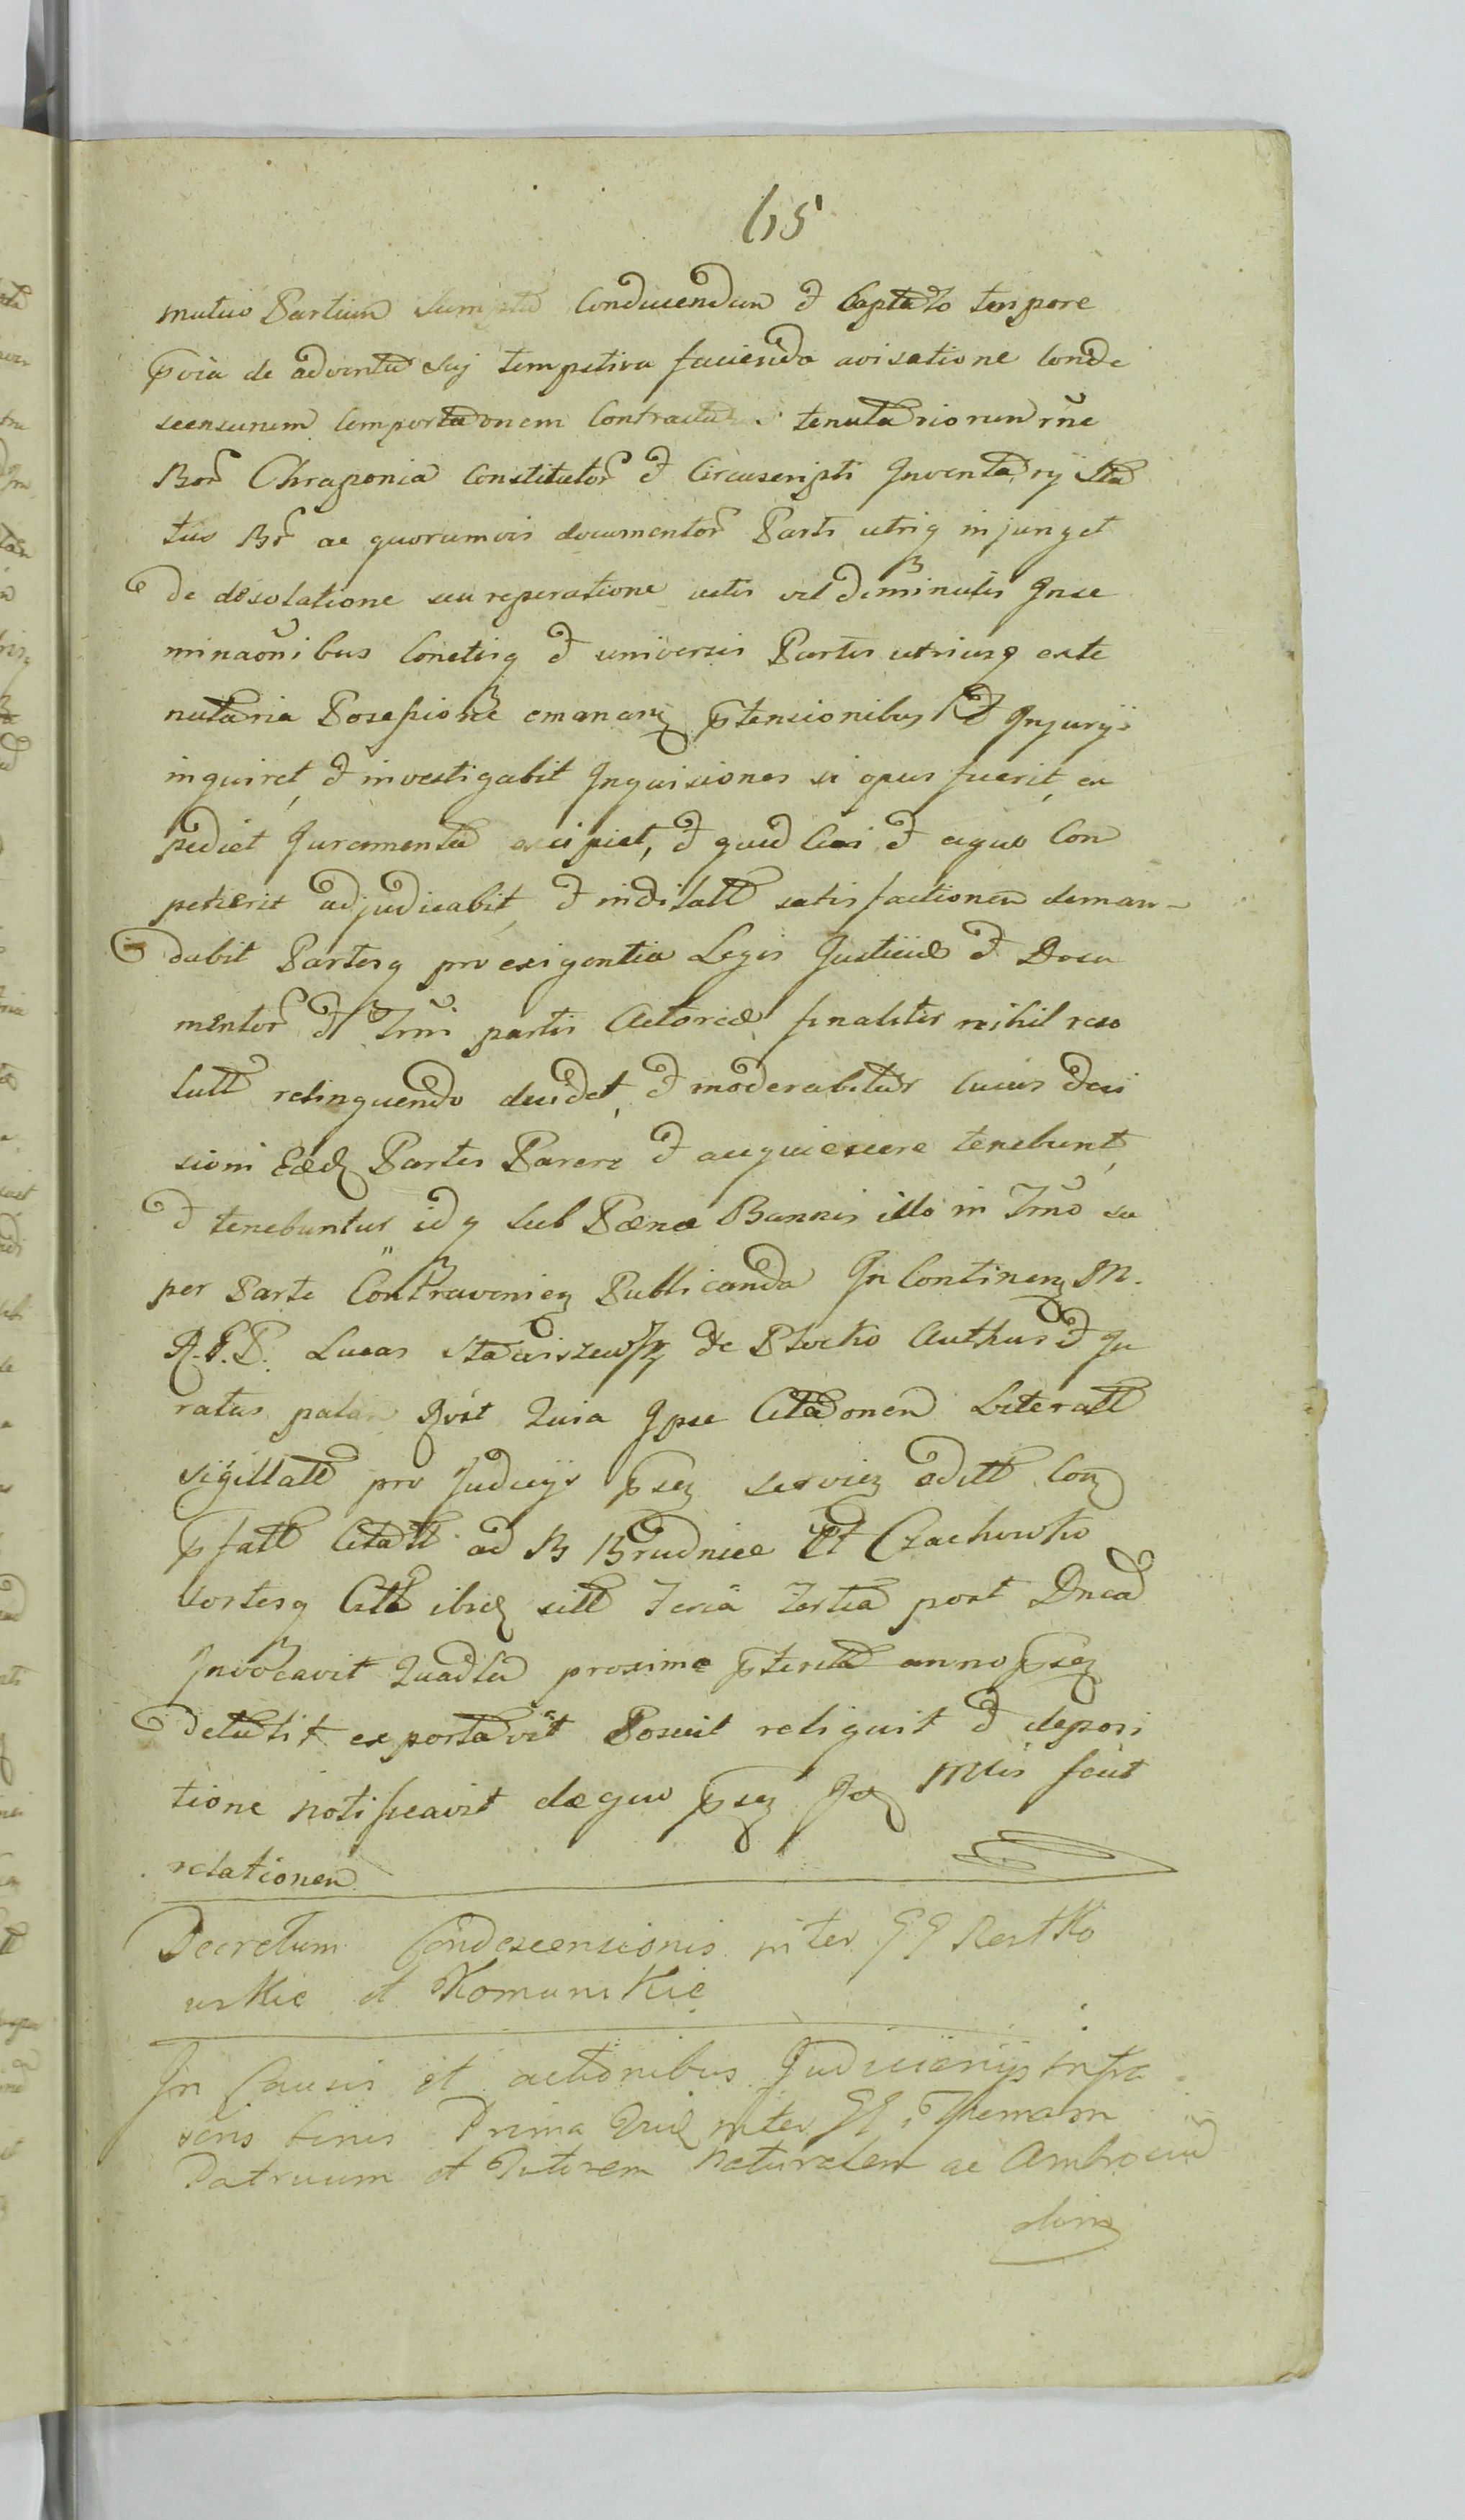 65
mutuo Partium Sumptu Conducendum et Captato tempore
pvia de adventu Suj tempestiva facienda avisatione Conde
scensurum Comportaonem Contractuu tenutariorum rñe
Bor Chraponia Constitutor et Circumscripti Inventarij Sta
tus Br ac quorumvis documentor Parti utriq injunget
de desolatione seu reperatione uctis vel diminutis Inse
minaonibus Conctisq et universis Partis utriusq exte
nutaria Posessione emanan ptensionibus et Injurijs
inquiret, et investigabit Inquisiones si opus fuerit, ex
pediet Juramenta excipiet, et quid Cui et a quo Com
petierit adjudicabit, et indilatt satisfactionem deman-
dabit Partesq pro exigentia Legis Justitiae et Docu
mentor et Trni partis Actoreae finaliter nihil reso
lutt relinquendo decidet, et moderabitur Cuius deci
sioni Eaed Partes Parere et acquiescere tenebunt,
et tenebuntur idq sub Paena Bannis illo in Trno su
per Parte Contravenien Publicanda In Continen M.
R. P. P. Lucas de Plocko Authus et Ju
ratus palam Rvit Quia Ipse Citaonem Literatt
sigillatt pro Judicijs psen servien editt Con
pfatt Citatt ad B Brudnice et Czachowko
Sortesq Citt ibid sitt Feria Tertia post Dncam
Invocavit Quadlem proxime pterita anno psen
detulit exportavit Posuit reliquit et deposi
tione notificavit deque psen Ja Mlis fecit
relationem
Decretum Condescensionis inter GG Rostko
wskie et Komunikie
In Causis et actionibus Judiciarijs infra
scris binis Prima Quid inter GG Thomam
Patruum et Tutorem Naturalem ac Ambrosium